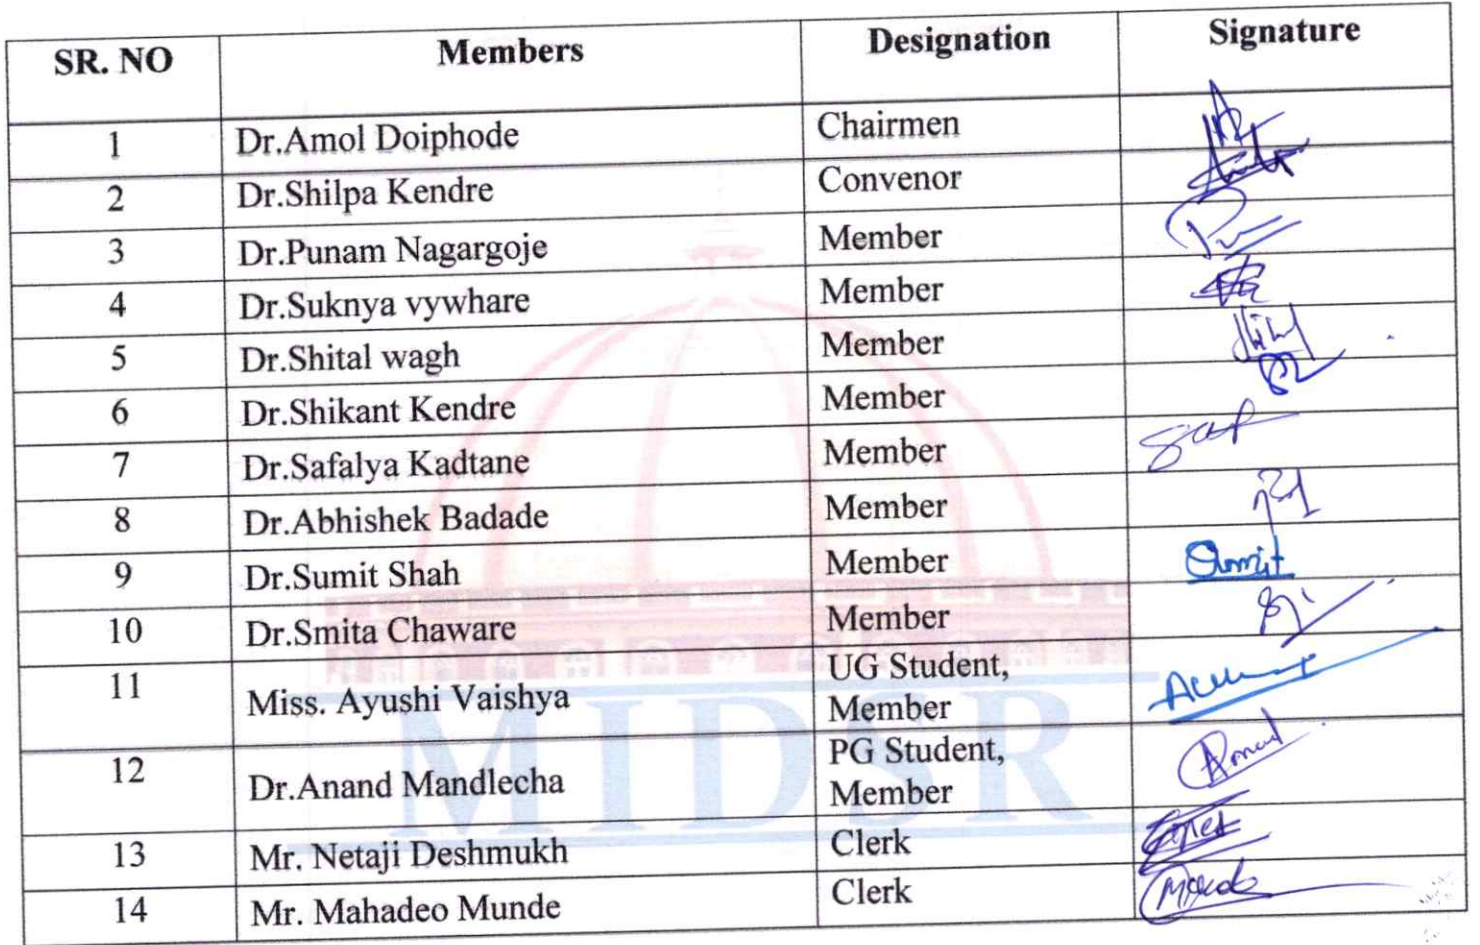 SR. NO Members Designation Signature
1 Dr.Amol Doiphode Chairmen
2 Dr.Shilpa Kendre Convenor
3 Dr.Punam Nagargoje Member
4 Dr.Suknya vywhare Member
5 Dr.Shital wagh Member
6 Dr.Shikant Kendre Member
7 Dr.Safalya Kadtane Member
8 Dr.Abhishek Badade Member
9 Dr.Sumit Shah Member Sumit
10 Dr.Smita Chaware Member
11 Miss. Ayushi Vaishya UG Student,
Member
12 Dr.Anand Mandlecha PG Student,
Member
13 Mr. Netaji Deshmukh Clerk
14 Mr. Mahadeo Munde Clerk
MIDSR